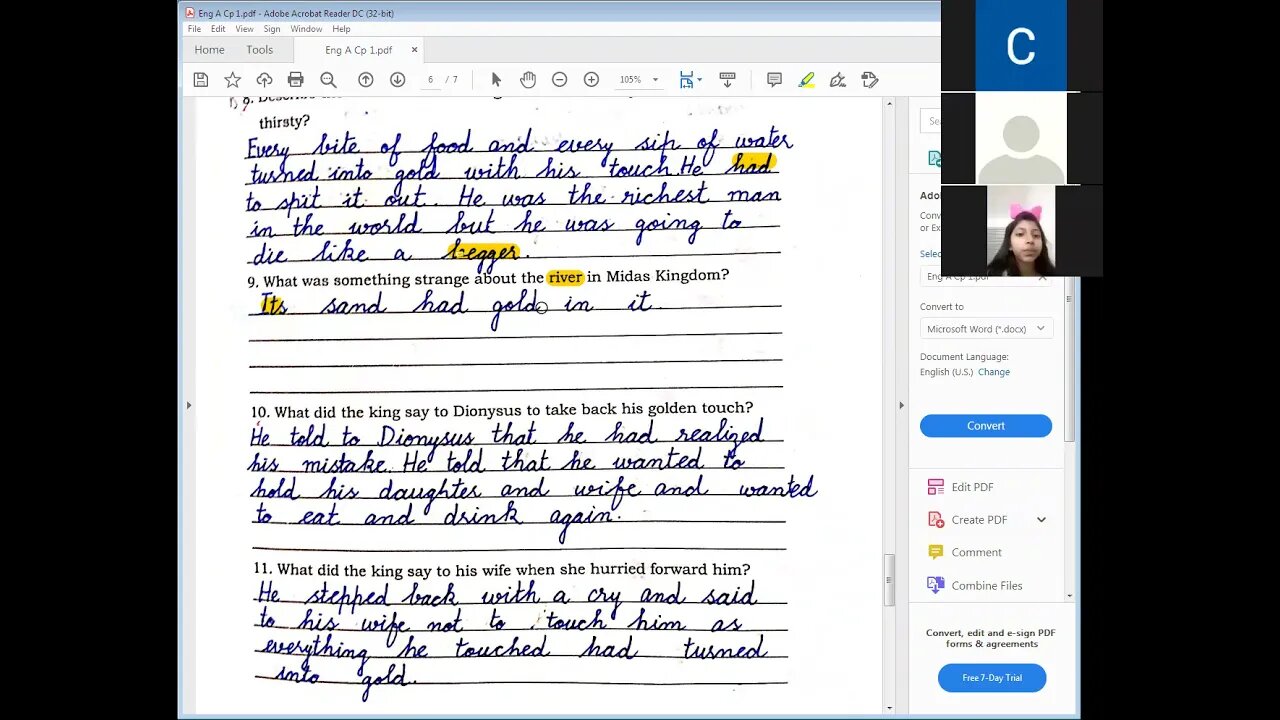 Eng A Cp 1.pdf - Adobe Acrobat Reader DC (32-bit)
File Edit View Sign Window Help
Home Tools Eng A Cp 1.pdf ×
6 / 7 105%
C
thirsty?
Every bite of food and every sip of water
turned into gold with his touch He had
to spit it out. He was the richest man
in the world but he was going to
die like a begger.
9. What was something strange about the river in Midas Kingdom?
Its sand had gold in it.
10. What did the king say to Dionysus to take back his golden touch?
He told to Dionysus that he had realized
his mistake. He told that he wanted to
hold his daughter and wife and wanted
to eat and drink again.
11. What did the king say to his wife when she hurried forward him?
He stepped back with a cry and said
to his wife not to touch him as
everything he touched had turned
into gold.
Eng A Cp 1.pdf
Convert to
Microsoft Word (*.docx)
Document Language:
English (U.S.) Change
Convert
Edit PDF
Create PDF
Comment
Combine Files
Convert, edit and e-sign PDF
forms & agreements
Free 7-Day Trial